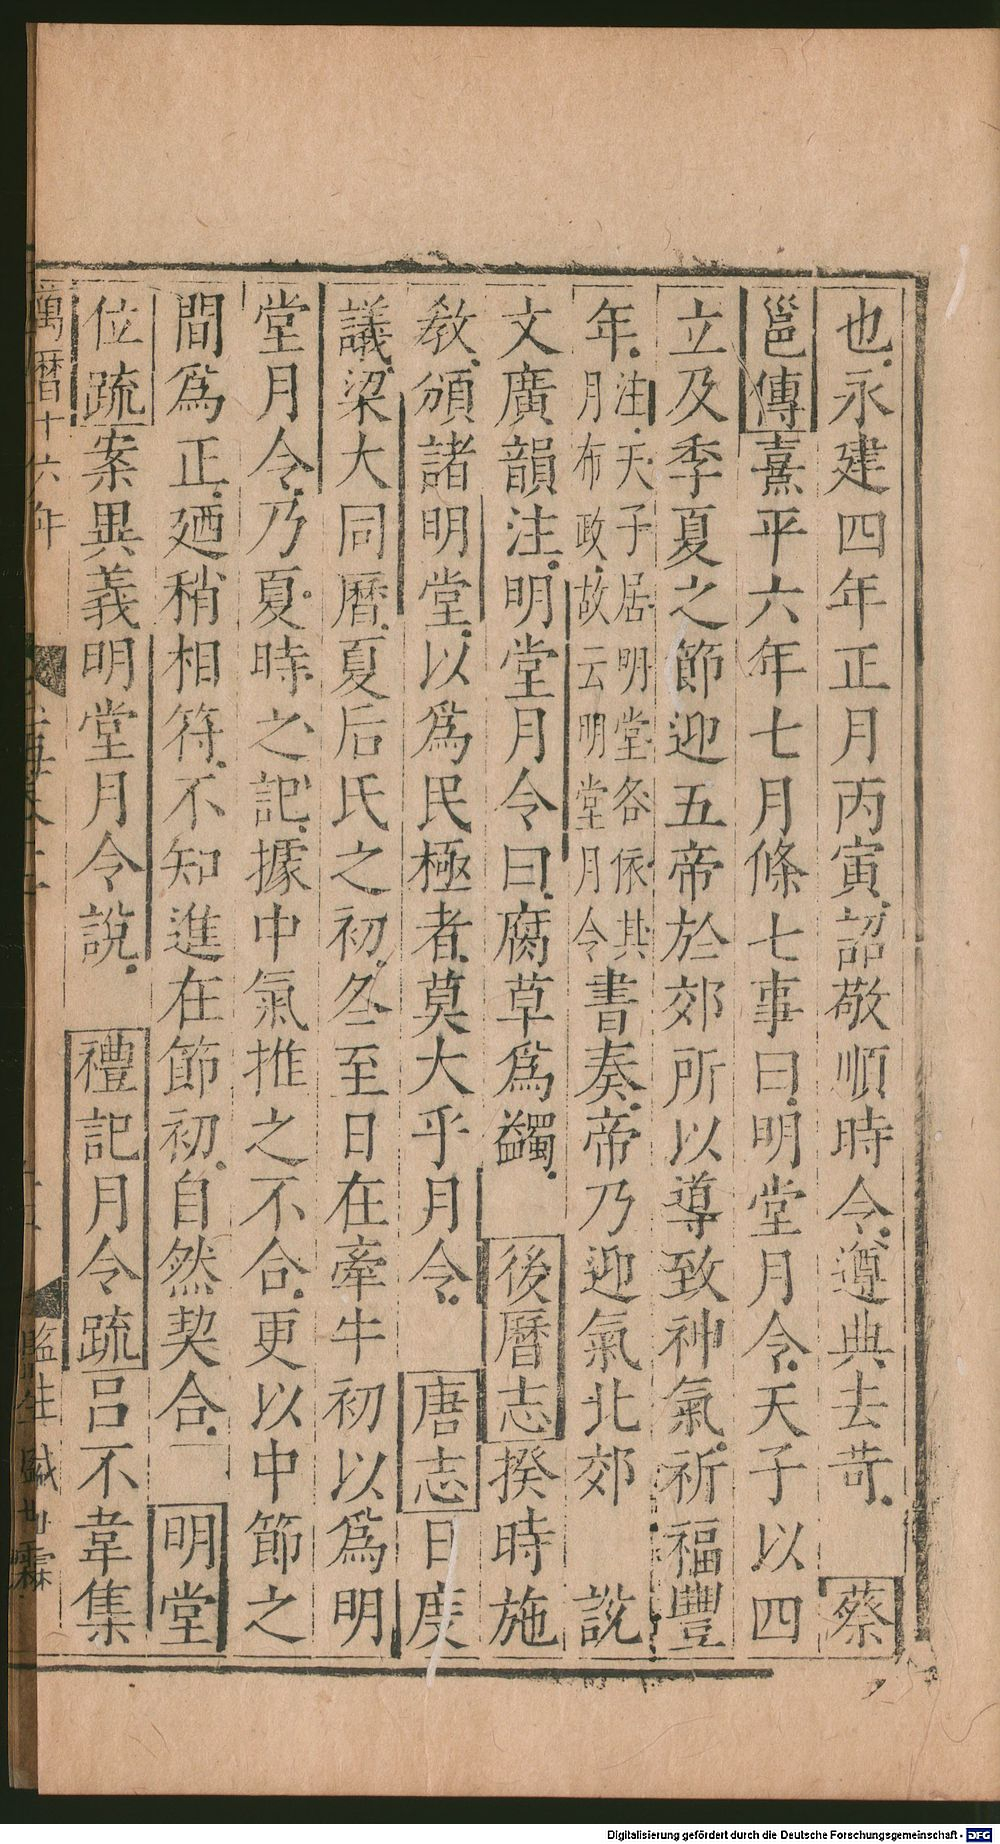 也永建四年正月丙寅詔敬順時令遵典去苛　蔡
邕傳熹平六年七月條七事曰明堂月令天子以四
立及季夏之節迎五帝於郊所以導致神氣祈福豐
年注天子居明堂各依其月布政故云明堂月令書奏帝乃迎氣北郊　說
文廣韻注明堂月令曰腐草爲蠲　後曆志揆時施
敎頒諸明堂以爲民極者莫大乎月令　唐志日度
議梁大同曆夏后氏之初冬至日在牽牛初以爲明
堂月令乃夏時之記據中氣推之不合更以中節之
間爲正廼稍相符不知進在節初自然契合　明堂
位疏案異義明堂月令說　禮記月令疏呂不韋集
萬曆十六年
監生
Digitalisierung gefördert durch die Deutsche Forschungsgemeinschaft - DFG